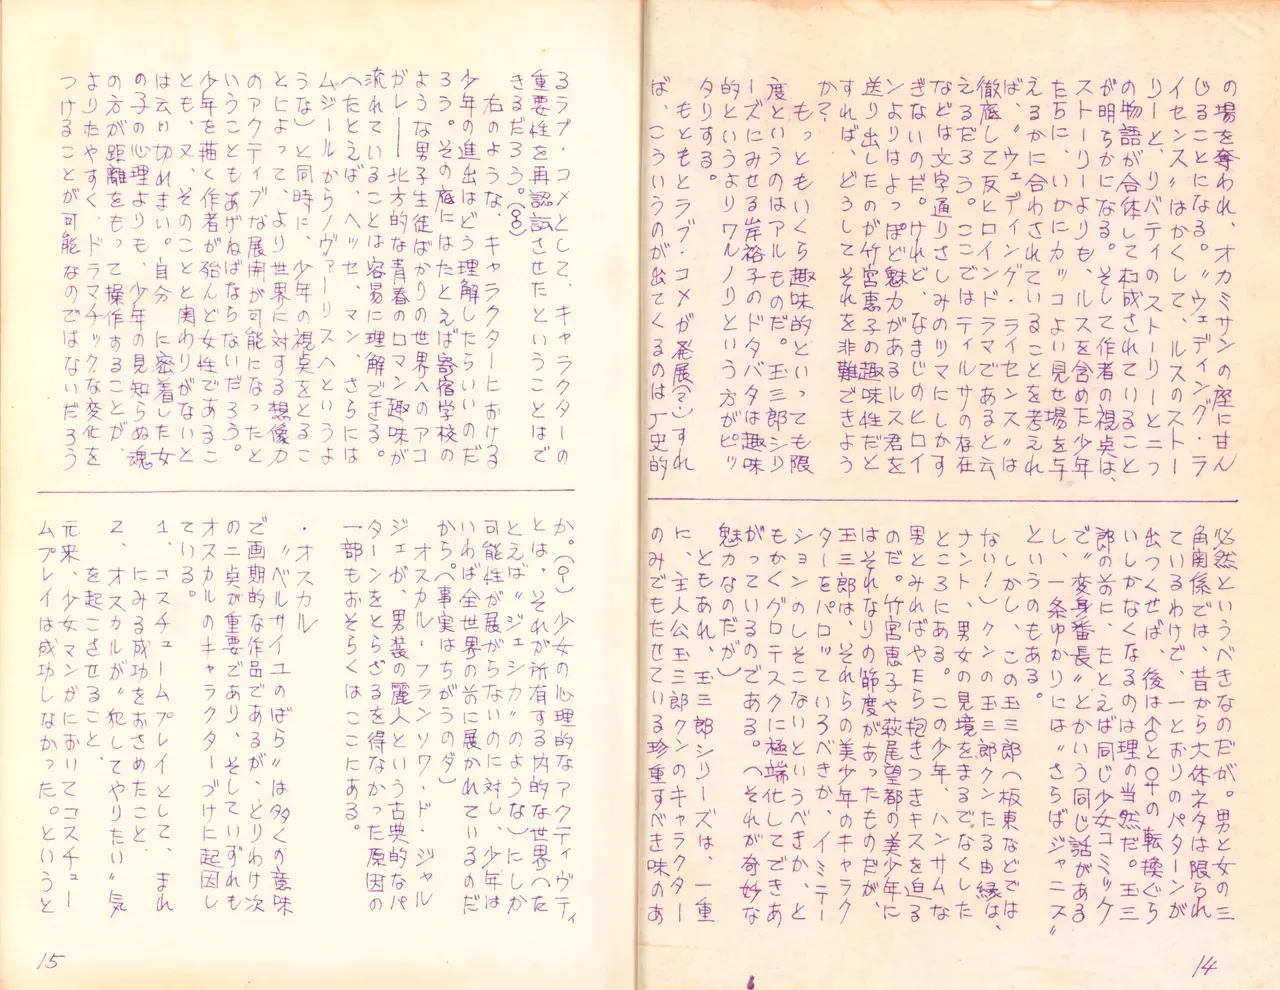 の場を奪われ、オカミサンの座に甘ん
じることになる。〝ウェディング・ラ
イセンス〟はかくして、ルスのストー
リーと、リバティのストーリーと二つ
の物語が合体して構成されていること
が明らかになる。そして作者の視点は、
ストーリーよりも、ルスを含めた少年
たちに、いかにカッコよい見せ場を与
えるかに合わされていることを考えれ
ば、〝ウェディング・ライセンス〟は
徹底して反ヒロインドラマであると云
えるだろう。ここではティルサの存在
などは文字通りさしみのツマにしかす
ぎないのだ。けれど、なまじのヒロイ
ンよりはよっぽど魅力があるルス君を
送り出したのが竹宮恵子の趣味性だと
すれば、どうしてそれを非難できよう
か?
もっともいくら趣味的といっても限
度というのはアルものだ。玉三郎シリ
ーズにみせる岸裕子のドタバタは趣味
的というよりワルノリという方がピッ
タリする。
もともとラブ・コメが発展(?)すれ
ば、こういうのが出てくるのは歴史的
必然というべきなのだが。男と女の三
角関係では、昔から大体ネタは限られ
ているわけで、一とおりのパターンが
出つくせば、後は♂と♀の転換ぐら
いしかなくなるのは理の当然だ。玉三
郎の前に、たとえば同じ少女コミック
で〝変身番長〟とかいう同じ話がある
し、一条ゆかりには〝さらばジャニス〟
というのもある。
しかし、この玉三郎(板東などでは
ない!)クンの玉三郎クンたる由縁は、
ナント、男女の見境をまるでなくした
ところにある。この少年、ハンサムな
男とみればやたら抱きつきキスを迫る
のだ。竹宮恵子や萩尾望都の美少年に
はそれなりの節度があったものだが、
玉三郎は、それらの美少年のキャラク
ターをパロっているべきか、イミテー
ションのしそこないというべきか、と
もかくグロテスクに極端化してできあ
がっているのである。(それが奇妙な
魅力なのだが)
ともあれ、玉三郎シリーズは、一重
に、主人公玉三郎クンのキャラクター
のみでもたせている珍重すべき味のあ
14
るラブ・コメとして、キャラクターの
重要性を再認識させたということはで
きるだろう。(♂)
右のような、キャラクターにおける
少年の進出はどう理解したらいいのだ
ろう。その底にはたとえば寄宿学校の
ような男子生徒ばかりの世界へのアコ
ガレ――北方的な青春のロマン趣味が
流れていることは容易に理解できる。
(たとえば、ヘッセ、マン、さらには
ムジールからノヴァーリスへというよ
うな)と同時に、少年の視点をとるこ
とによって、より世界に対する想像力
のアクティブな展開が可能になったと
いうこともあげねばならないだろう。
少年を描く作者が殆んど女性であるこ
とも、又、そのことと関わりがないと
は云い切れまい。自分に密着した女
の子の心理よりも、少年の見知らぬ魂
の方が距離をもって操作することが、
よりたやすく、ドラマチックな変化を
つけることが可能なのではないだろう
か。(♀)少女の心理的なアクティヴティ
とは、それが所有する内的な世界へ(た
とえば〝ジェシカ〟のような)にしか
可能性が展がらないのに対し、少年は
いわば全世界の前に展かれているのだ
から。(事実はちがうのダ)
オスカル・フランソワ・ド・ジャル
ジェが、男装の麗人という古典的なパ
ターンをとらざるを得なかった原因の
一部もおそらくはここにある。
・オスカル
〝ベルサイユのばら〟は多くの意味
で画期的な作品であるが、とりわけ次
の二点が重要であり、そしていずれも
オスカルのキャラクターづけに起因し
ている。
1、コスチュームプレイとして、まれ
にみる成功をおさめたこと、
2、オスカルが〝犯してやりたい〟気
を起こさせること、
元来、少女マンガにおいてコスチュー
ムプレイは成功しなかった。というと
15